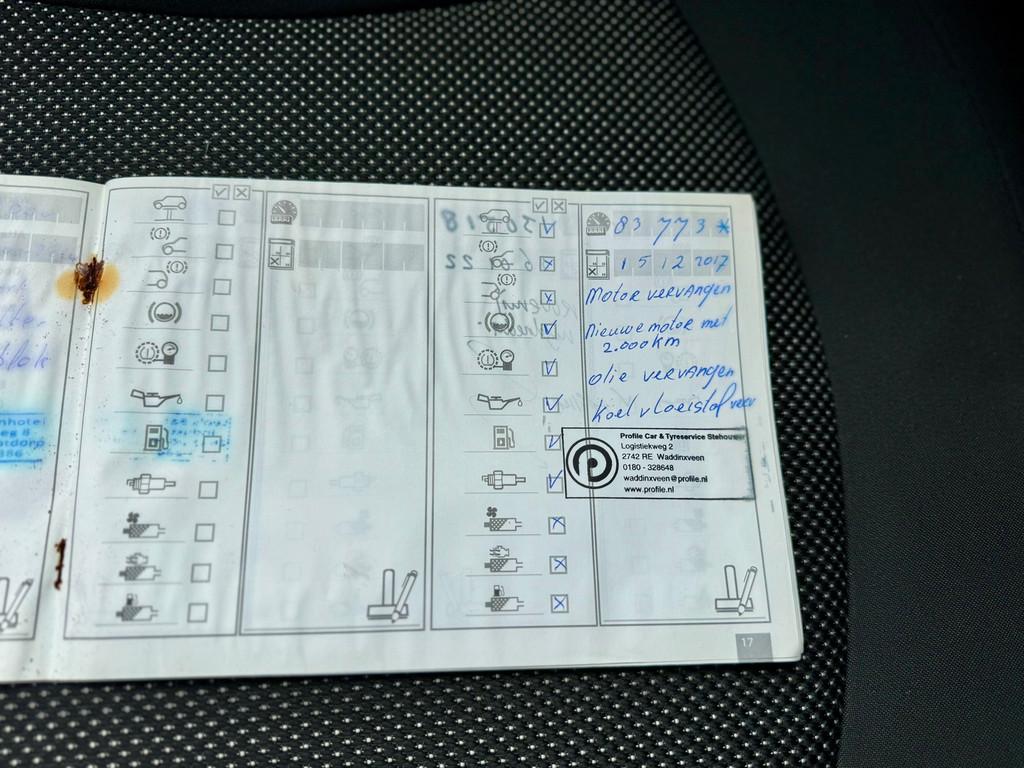 83 773 *
15 12 2017
Motor vervangen
nieuwe motor met
2.000 km
olie vervangen
Koelvloeistof verv
Profile Car & Tyreservice Stehouwer
Logistiekweg 2
2742 RE Waddinxveen
0180 - 328648
waddinxveen@profile.nl
www.profile.nl
17